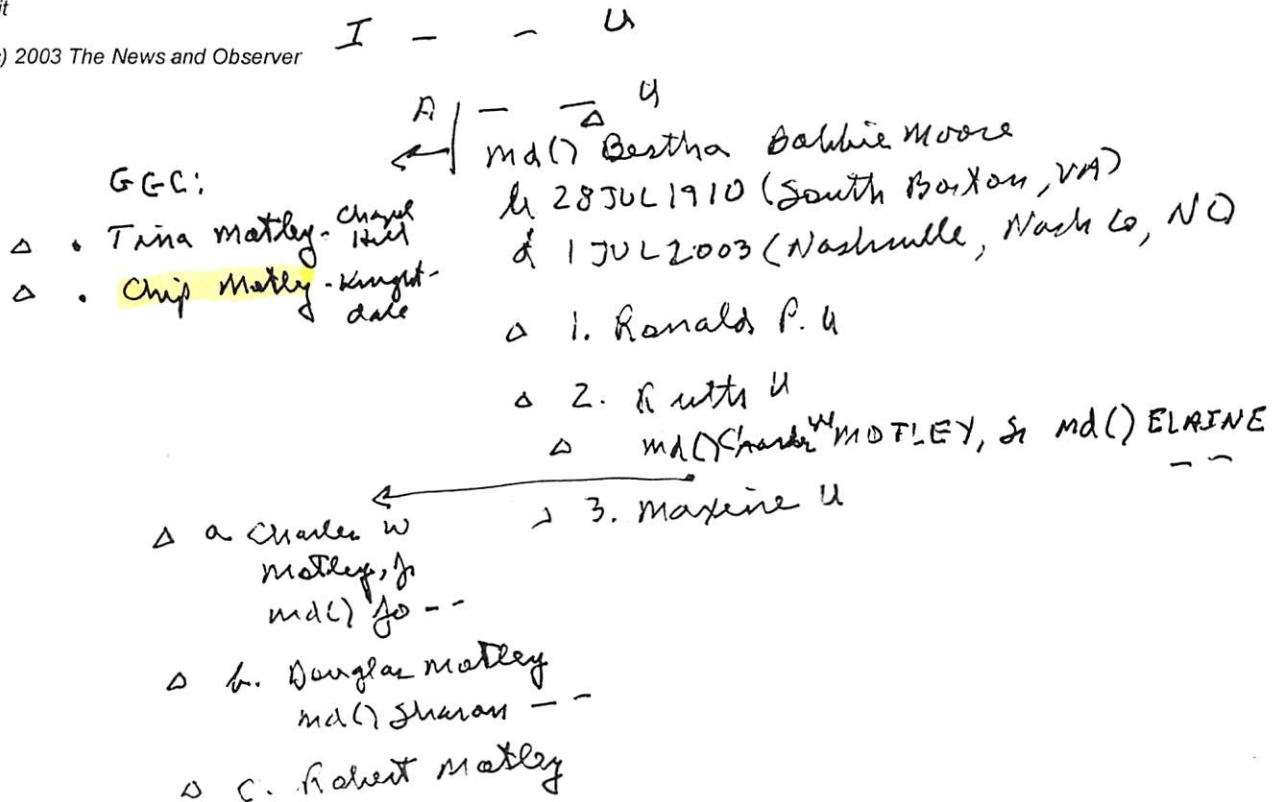 it
c) 2003 The News and Observer
I - - U
A - - U
md() Bertha Bobbie Moore
b 28 JUL 1910 (South Boston, VA)
d 1 JUL 2003 (Nashville, Nash Co, NC)
GGC:
Tina Motley - Chapel Hill
Chip Motley - Knight-
dale
1. Ronald P. U
2. Ruth U
md() Charles W MOTLEY, Sr md() ELAINE - -
3. Maxine U
a. Charles W
Motley, Jr
md() Jo - -
b. Douglas Motley
md() Sharon - -
c. Robert Motley